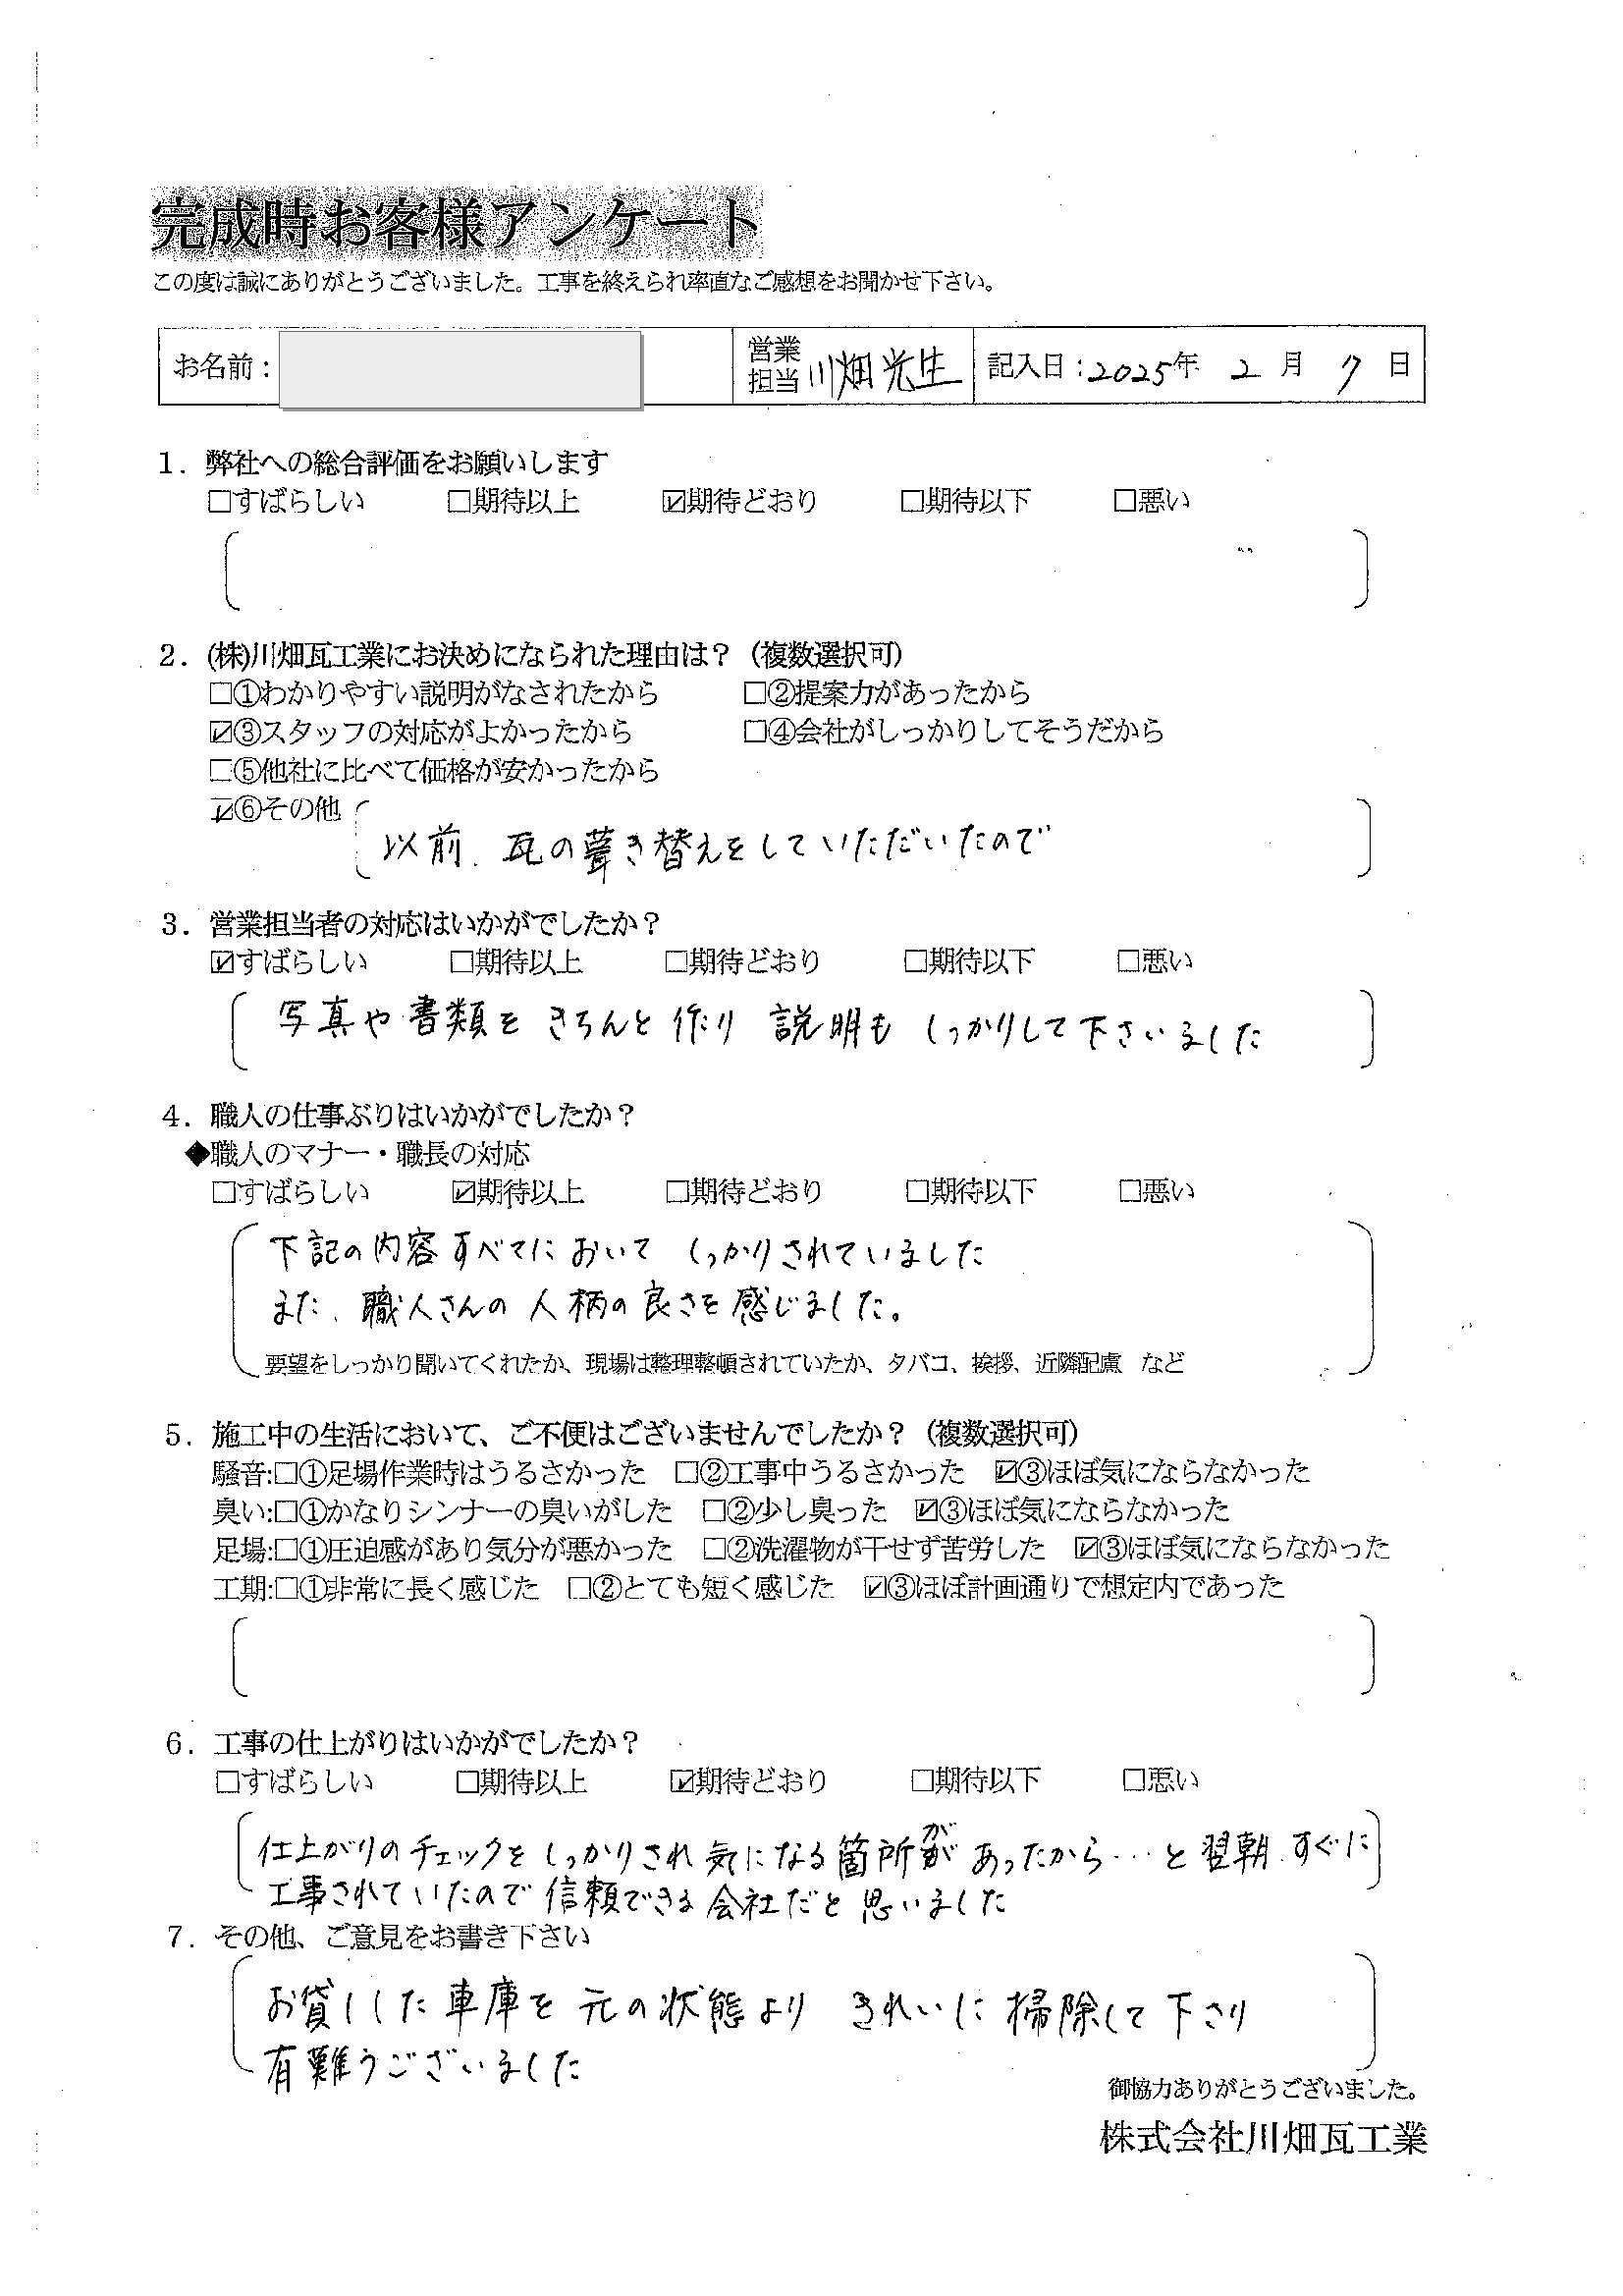 完成時お客様アンケート
この度は誠にありがとうございました。工事を終えられ率直なご感想をお聞かせ下さい。
お名前： 営業担当 川畑光生 記入日：2025年 2月 7日
1．弊社への総合評価をお願いします
□すばらしい □期待以上 ☑期待どおり □期待以下 □悪い
2．(株)川畑瓦工業にお決めになられた理由は？（複数選択可）
□①わかりやすい説明がなされたから □②提案力があったから
☑③スタッフの対応がよかったから □④会社がしっかりしてそうだから
□⑤他社に比べて価格が安かったから
☑⑥その他
以前、瓦の葺き替えをしていただいたので
3．営業担当者の対応はいかがでしたか？
☑すばらしい □期待以上 □期待どおり □期待以下 □悪い
写真や書類を きちんと作り 説明も しっかりして下さいました
4．職人の仕事ぶりはいかがでしたか？
◆職人のマナー・職長の対応
□すばらしい ☑期待以上 □期待どおり □期待以下 □悪い
下記の内容すべてにおいて しっかりされていました
また、職人さんの人柄の良さを感じました。
要望をしっかり聞いてくれたか、現場は整理整頓されていたか、タバコ、挨拶、近隣配慮 など
5．施工中の生活において、ご不便はございませんでしたか？（複数選択可）
騒音:□①足場作業時はうるさかった □②工事中うるさかった ☑③ほぼ気にならなかった
臭い:□①かなりシンナーの臭いがした □②少し臭った ☑③ほぼ気にならなかった
足場:□①圧迫感があり気分が悪かった □②洗濯物が干せず苦労した ☑③ほぼ気にならなかった
工期:□①非常に長く感じた □②とても短く感じた ☑③ほぼ計画通りで想定内であった
6．工事の仕上がりはいかがでしたか？
□すばらしい □期待以上 ☑期待どおり □期待以下 □悪い
仕上がりのチェックをしっかりされ気になる箇所があったから…と翌朝、すぐに
工事されていたので信頼できる会社だと思いました
7．その他、ご意見をお書き下さい
お貸しした車庫を元の状態より きれいに掃除して下さり
有難うございました
御協力ありがとうございました。
株式会社川畑瓦工業